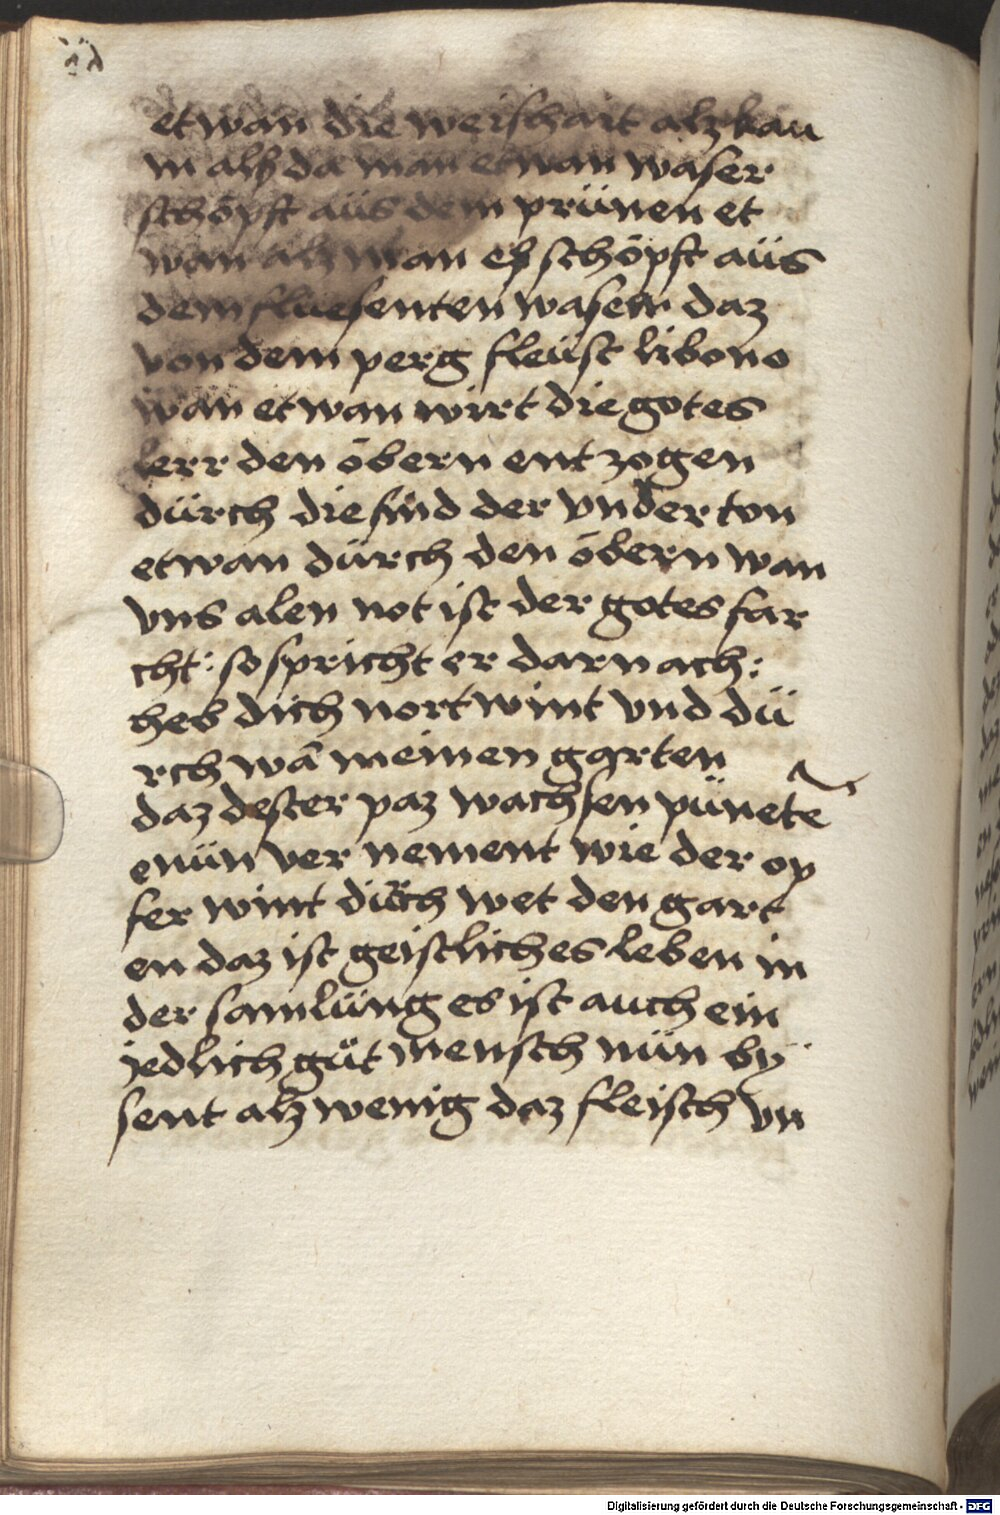 etwan die weishait alz kau
m alß da man etwan waser
schöpft aüs dem prünen et
wan alz man eß schöpft aüs
dem fluesenten wasem daz
von dem perg fleüst libono
wan etwan wirt die gotes
lerr den öbern ent zogen
dürch die sünd der vnder ton
etwan dürch den öbern wan
vns alen not ist der gotes far
cht: so spricht er darnach:
heb dich nort wint vnd dü
rch wā meinen garten
daz dester paz wachsen pünete
enün ver nement wie der op
fer wint dürch wet den gart
en daz ist geistliches leben in
der samlüng es ist auch ein
jedlich güt mensch nün by
sent alz wenig daz fleisch vn
Digitalisierung gefördert durch die Deutsche Forschungsgemeinschaft - DFG